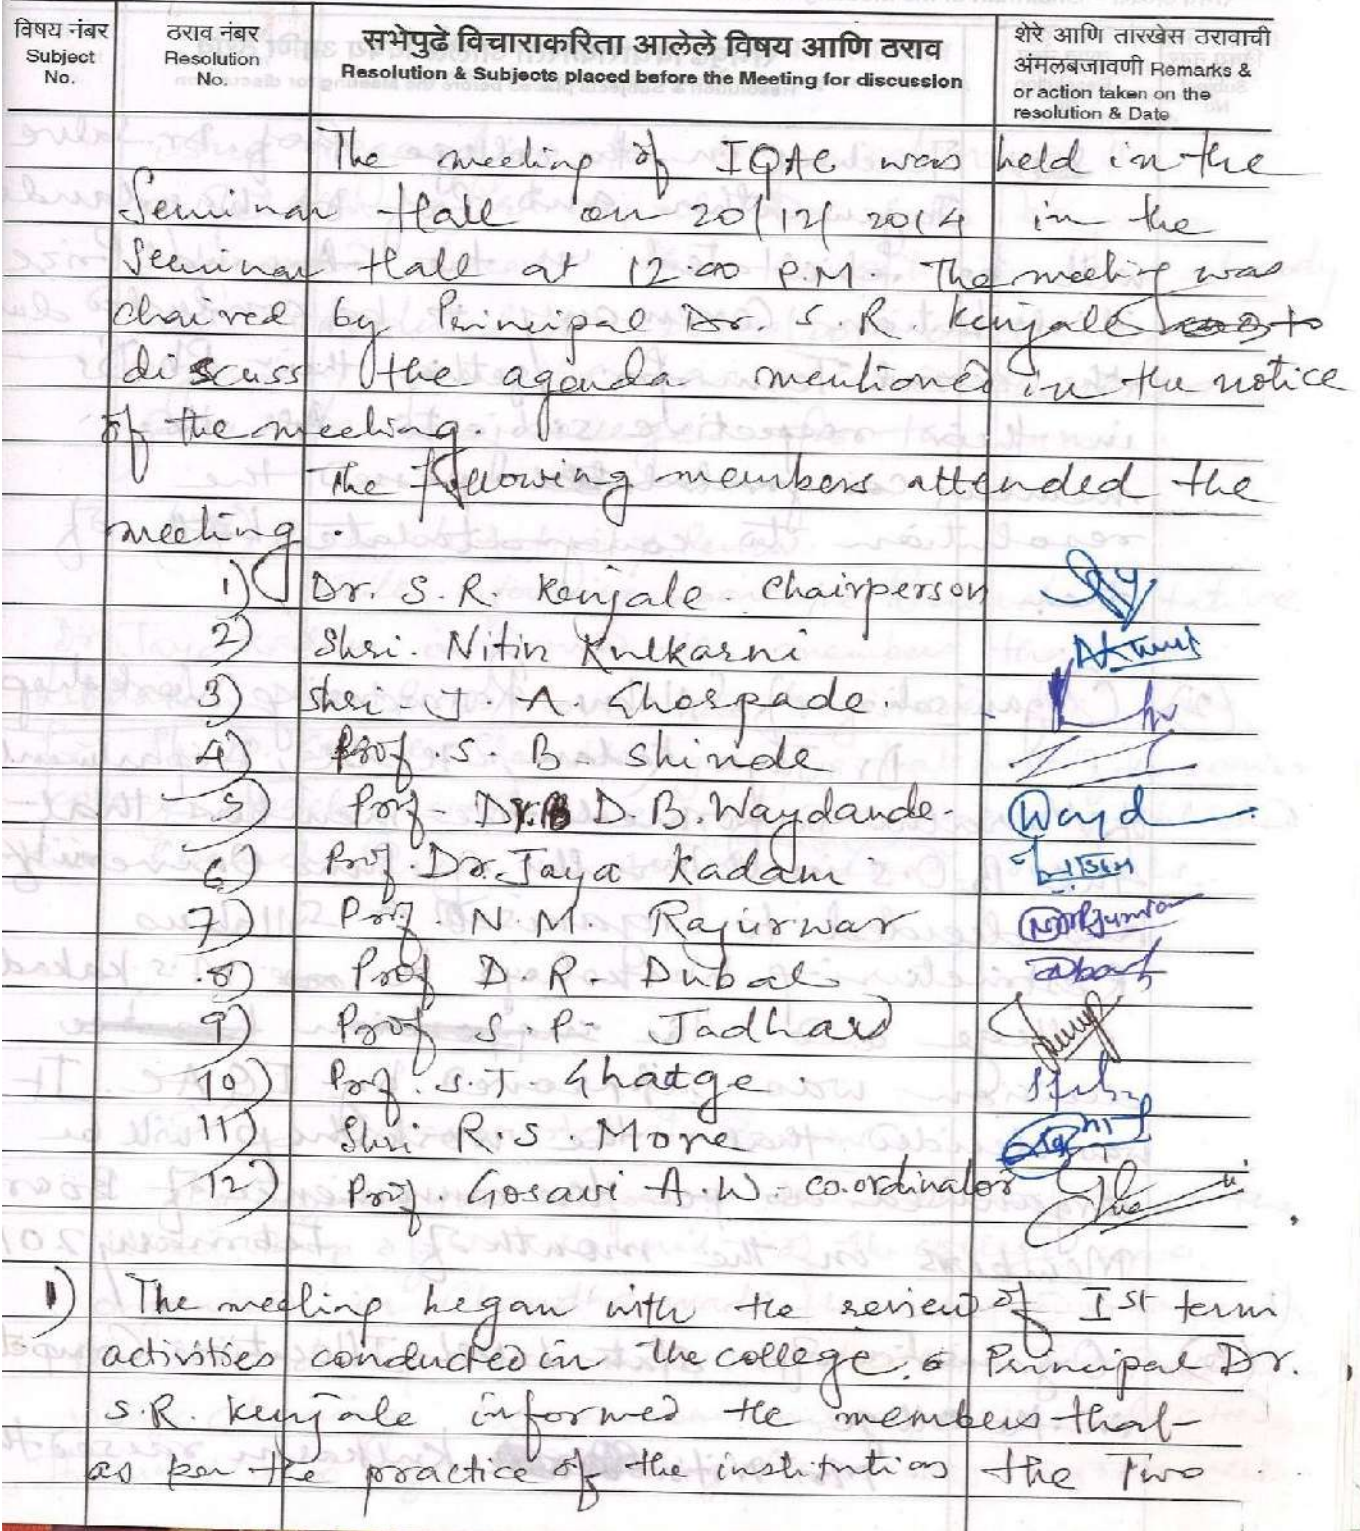 विषय नंबर
Subject
No.
ठराव नंबर
Resolution
No.
सभेपुढे विचाराकरिता आलेले विषय आणि ठराव
Resolution & Subjects placed before the Meeting for discussion
शेरे आणि तारखेस ठरावाची
अंमलबजावणी Remarks &
or action taken on the
resolution & Date
The meeting of IQAC was held in the
Seminar Hall on 20/12/2014 in the
Seminar Hall at 12.00 P.M. The meeting was
chaired by Principal Dr. S. R. Kenjale to
discuss the agenda mentioned in the notice
of the meeting.
The following members attended the
meeting.
1) Dr. S. R. Kenjale Chairperson
2) Shri. Nitin Kulkarni
3) Shri. J. A. Ghorpade.
4) Prof. S. B. Shinde
5) Prof. Dr. D. B. Waydande.
6) Prof. Dr. Jaya Kadam
7) Prof. N. M. Rajurwar
8) Prof D. R. Dubal
9) Prof S. P. Jadhav
10) Prof. S. T. Ghatge.
11) Shri R. S. More
12) Prof. Gosavi A. W. co.ordinator
1) The meeting began with the review of Ist term
activities conducted in the college. Principal Dr.
S. R. Kenjale informed the members that
as per the practice of the institution the Two